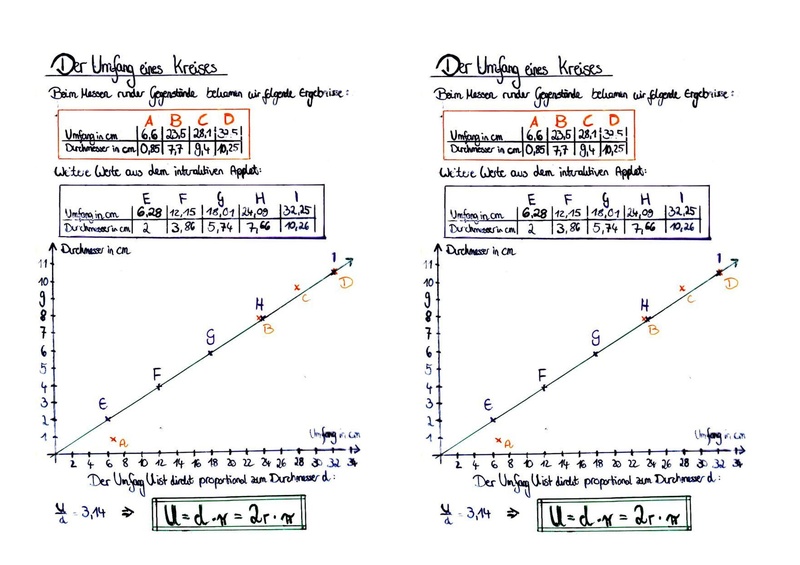 Der Umfang eines Kreises
Beim Messen runder Gegenstände bekamen wir folgende Ergebnisse:
A B C D
Umfang in cm 6,6 23,5 28,1 32,5
Durchmesser in cm 0,85 7,7 9,4 10,25
Weitere Werte aus dem interaktiven Applet:
E F G H I
Umfang in cm 6,28 12,15 18,01 24,09 32,25
Durchmesser in cm 2 3,86 5,74 7,66 10,26
Durchmesser in cm
11
10
9
8
7
6
5
4
3
2
1
E
A
F
G
H
B
C
I
D
Umfang in cm
2 4 6 8 10 12 14 16 18 20 22 24 26 28 30 32 34
Der Umfang U ist direkt proportional zum Durchmesser d:
U/d = 3,14 ⇒ U = d · π = 2r · π
Der Umfang eines Kreises
Beim Messen runder Gegenstände bekamen wir folgende Ergebnisse:
A B C D
Umfang in cm 6,6 23,5 28,1 32,5
Durchmesser in cm 0,85 7,7 9,4 10,25
Weitere Werte aus dem interaktiven Applet:
E F G H I
Umfang in cm 6,28 12,15 18,01 24,09 32,25
Durchmesser in cm 2 3,86 5,74 7,66 10,26
Durchmesser in cm
11
10
9
8
7
6
5
4
3
2
1
E
A
F
G
H
B
C
I
D
Umfang in cm
2 4 6 8 10 12 14 16 18 20 22 24 26 28 30 32 34
Der Umfang U ist direkt proportional zum Durchmesser d:
U/d = 3,14 ⇒ U = d · π = 2r · π